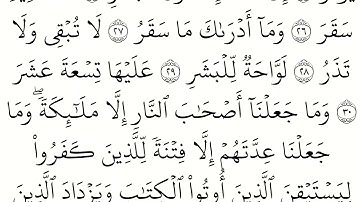 سَقَرَ ۝٢٦ وَمَآ أَدۡرَىٰكَ مَا سَقَرُ ۝٢٧ لَا تُبۡقِي وَلَا
تَذَرُ ۝٢٨ لَوَّاحَةٞ لِّلۡبَشَرِ ۝٢٩ عَلَيۡهَا تِسۡعَةَ عَشَرَ
۝٣٠ وَمَا جَعَلۡنَآ أَصۡحَٰبَ ٱلنَّارِ إِلَّا مَلَٰٓئِكَةٗۖ وَمَا
جَعَلۡنَا عِدَّتَهُمۡ إِلَّا فِتۡنَةٗ لِّلَّذِينَ كَفَرُواْ
لِيَسۡتَيۡقِنَ ٱلَّذِينَ أُوتُواْ ٱلۡكِتَٰبَ وَيَزۡدَادَ ٱلَّذِينَ